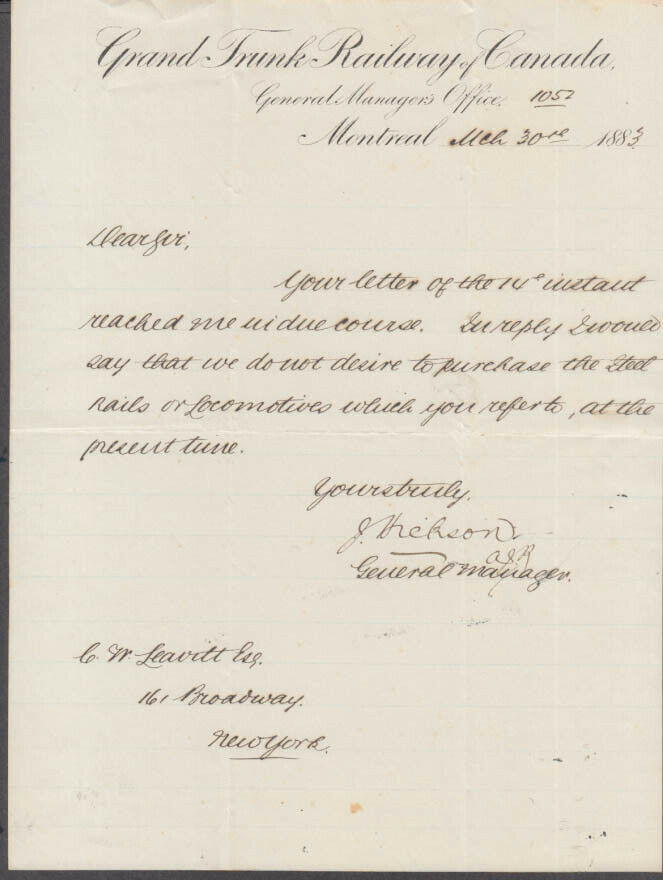 Grand Trunk Railway of Canada.
General Manager's Office. 1052
Montreal Mch 30th 1883
Dear Sir,
Your letter of the 14th instant
reached me in due course. In reply I would
say that we do not desire to purchase the Steel
Rails or Locomotives which you refer to, at the
present time.
Yours truly,
J. Hickson
General Manager.
C. W. Leavitt Esq.
161 Broadway.
New York.